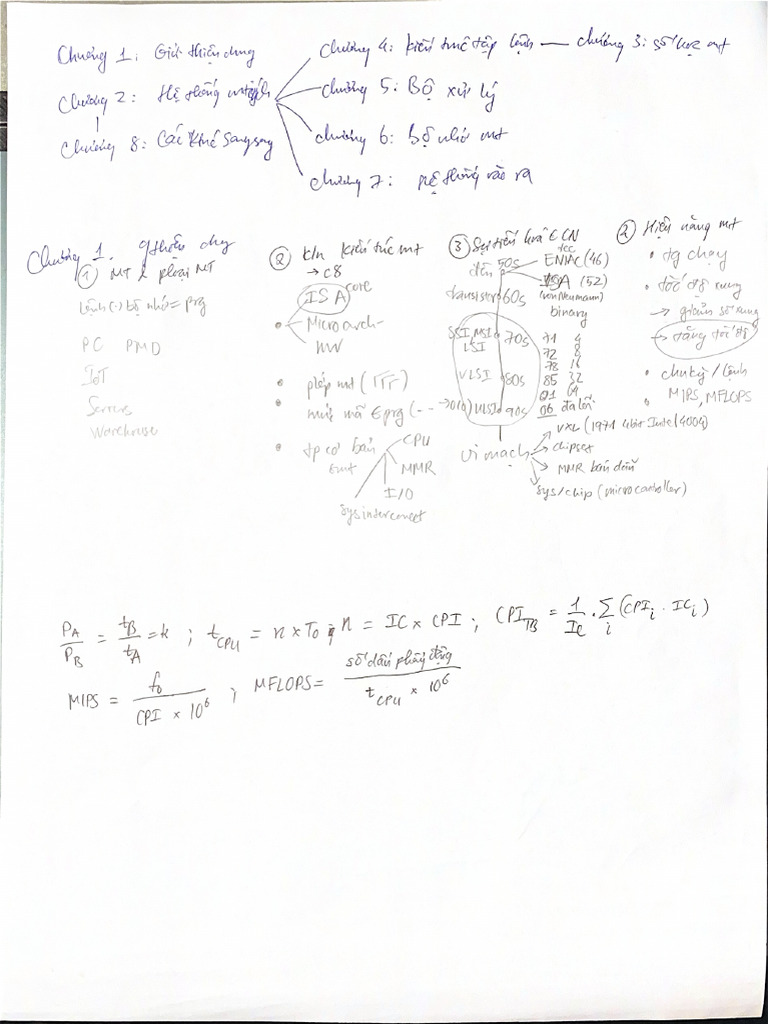 Chương 1: Giới thiệu chung
Chương 2: Hệ thống máy tính
Chương 8: Các ktrúc song song
Chương 4: kiến trúc tập lệnh — chương 3: số học mt
chương 5: Bộ xử lý
chương 6: bộ nhớ mt
chương 7: hệ thống vào ra
Chương 1. gthiệu chg
① MT & ploại MT
lệnh (.) bộ nhớ = prg
PC PMD
IoT
Servers
Warehouse
② k/n kiến trúc mt
→ c8
ISA core
Microarch-
HW
phép mt (
mức mã € prg (-- → 010)
tp cơ bản
€ mt
CPU
MMR
I/O
sys interconnect
③ Sự tiến hoá € CN
đèn 50s
ENIAC (46)
IAS (52)
(von Neumann)
binary
transistor 60s
SSI, MSI 70s
LSI
VLSI 80s
ULSI 90s
71 4
72 8
78 16
85 32
01 64
06 đa lõi
vi mạch
VXL (1971 4bit Intel 4004)
chipset
MMR bán dẫn
sys/chip (microcontroller)
② Hiệu năng mt
tg chạy
tốc độ xung
→ giảm số xung
→ tăng tốc độ
chu kỳ / lệnh
MIPS, MFLOPS
P_A / P_B = t_B / t_A = k ; t_CPU = n × T_0 ; n = IC × CPI ; CPI_TB = 1/IC . Σ_i (CPI_i . IC_i)
MIPS = f_0 / (CPI × 10^6) ; MFLOPS = số dấu phẩy động / (t_CPU × 10^6)